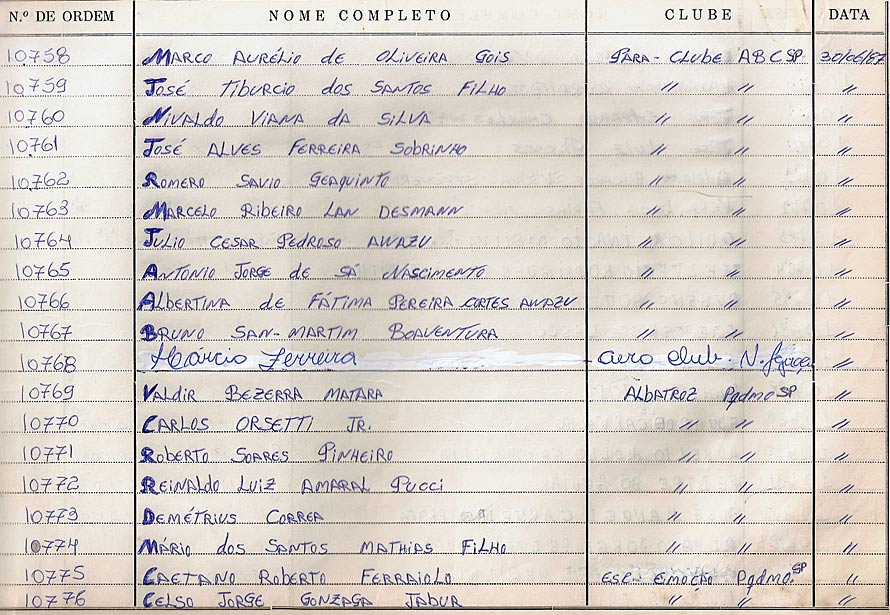 N.º DE ORDEM NOME COMPLETO CLUBE DATA
10758 MARCO AURÉLIO de OLIVEIRA GOIS PARA-CLUBE ABC SP 30/06/87
10759 JOSÉ TIBURCIO dos SANTOS FILHO " " "
10760 NIVALDO VIANA dA SILVA " " "
10761 JOSÉ ALVES FERREIRA SOBRINHO " " "
10762 ROMERO SAVIO GEAQUINTO " " "
10763 MARCELO RIBEIRO LAN DESMANN " " "
10764 JULIO CESAR PEDROSO AWAZU " " "
10765 ANTONIO JORGE de SÁ NASCIMENTO " " "
10766 ALBERTINA de FÁTIMA PEREIRA CORTES AWAZU " " "
10767 BRUNO SAN-MARTIM BOAVENTURA " " "
10768 Márcio Ferreira aero club. N. "
10769 VALDIR BEZERRA MATARA ALBATROZ Pqdmo SP "
10770 CARLOS ORSETTI JR. " " "
10771 ROBERTO SOARES PINHEIRO " " "
10772 REINALDO LUIZ AMARAL PUCCI " " "
10773 DEMÉTRIUS CORREA " " "
10774 MÁRIO dos SANTOS MATHIAS FILHO " " "
10775 CAETANO ROBERTO FERRAIOLO ESC. EMOÇÃO Pqdmo. SP "
10776 CELSO JORGE GONZAGA JABUR " " "